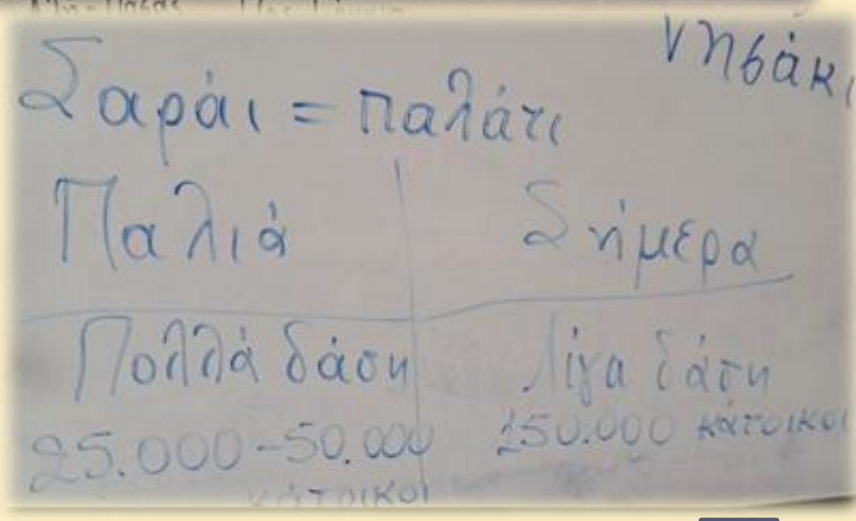 νησάκι
Σαράι = παλάτι
Παλιά Σήμερα
Πολλά δάση Λίγα δάση
25.000-50.000 150.000 κάτοικοι
κάτοικοι